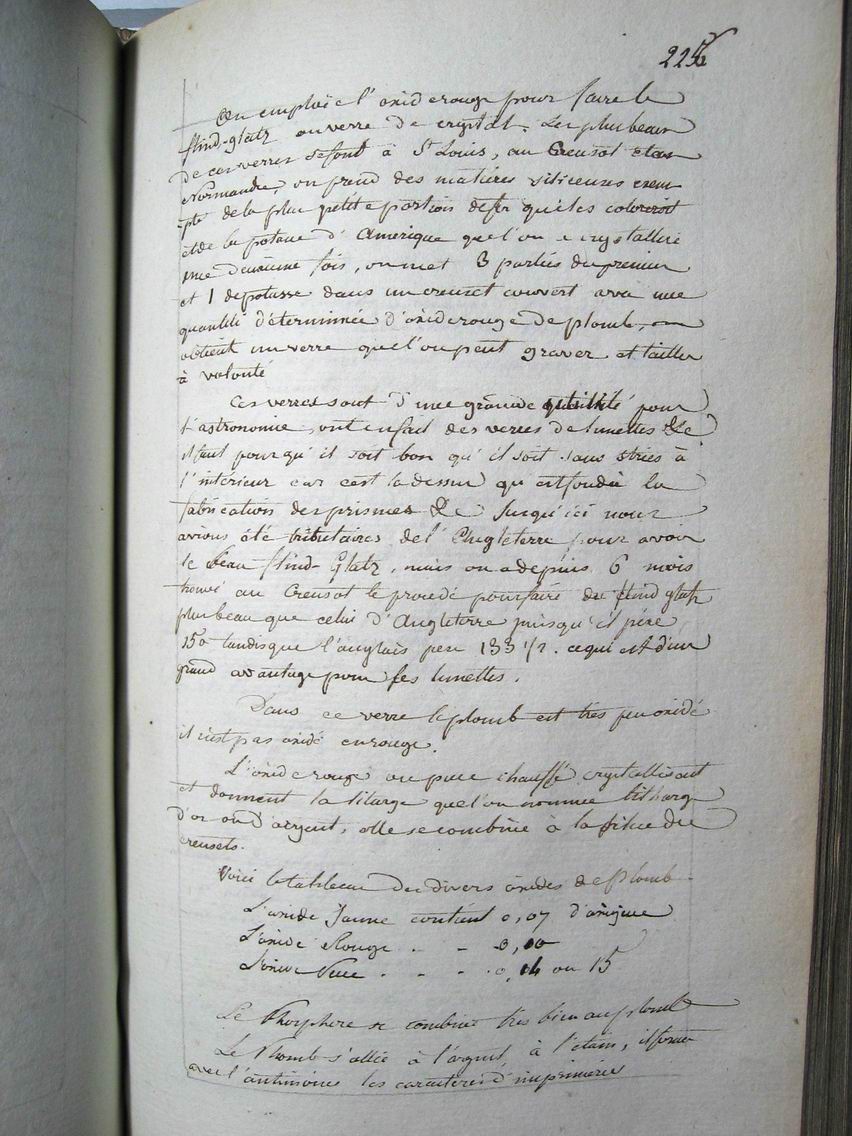 225
On emploie l'oxide rouge pour faire le
flind-glatz ou verre de crystal. Les plus beaux
de ces verres se font à St Louis, au Creusot et en
Normandie, on prend des matières siliceuses exem
pte de la plus petite portion de fer qui les coloreroit
et de la potasse d'Amerique que l'on a crystallisé
une deuxième fois, on met 3 parties du premier
et 1 de potasse dans un creuset couvert avec une
quantité déterminée d'oxide rouge de plomb, on
obtient un verre que l'on peut graver et tailler
à volonté
Ces verres sont d'une grande utilité pour
l'astronomie, on en fait des verres de lunettes &c
il faut pour qu'il soit bon qu'il soit sans stries à
l'intérieur car c'est la dessus qu'est fondée la
fabrication des prismes &c Jusqu'ici nous
avions été tributaires de l'Angleterre pour avoir
le beau flind-Glatz, mais on a depuis 6 mois
trouvé au Creusot le procédé pour faire du flind glatz
plus beau que celui d'Angleterre puisqu'il pèse
150 tandisque l'anglais pese 133 1/2. ce qui est d'un
grand avantage pour les lunettes.
Dans ce verre le plomb est très peu oxidé
il n'est pas oxidé en rouge.
L'oxide rouge ou puce chauffé crystallisent
et donnent la litarge que l'on nomme litharge
d'or ou d'argent, elle se combine à la silice des
creusets.
Voici le tableau des divers oxides de plomb
L'oxide Jaune contient 0,07 d'oxigene
L'oxide Rouge . - 0,10
L'oxide Puce . - . 0,14 ou 15
Le Phosphore se combine très bien au plomb
Le Plomb s'allie à l'argent, à l'étain, il forme
avec l'antimoine les caractères d'imprimerie